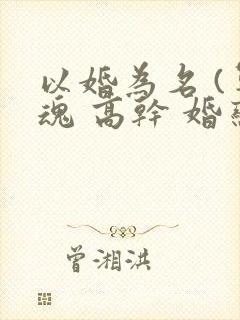 以婚為名 (
魂 高幹 婚
曾湘洪